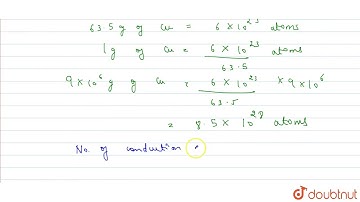 63.5 g of Cu = 6 × 10²³ atoms
1 g of Cu = 6 × 10²³ / 63.5 atoms
9 × 10⁶ g of Cu = 6 × 10²³ / 63.5 × 9 × 10⁶
= 8.5 × 10²⁸ atoms
No. of conduction
doubtnut